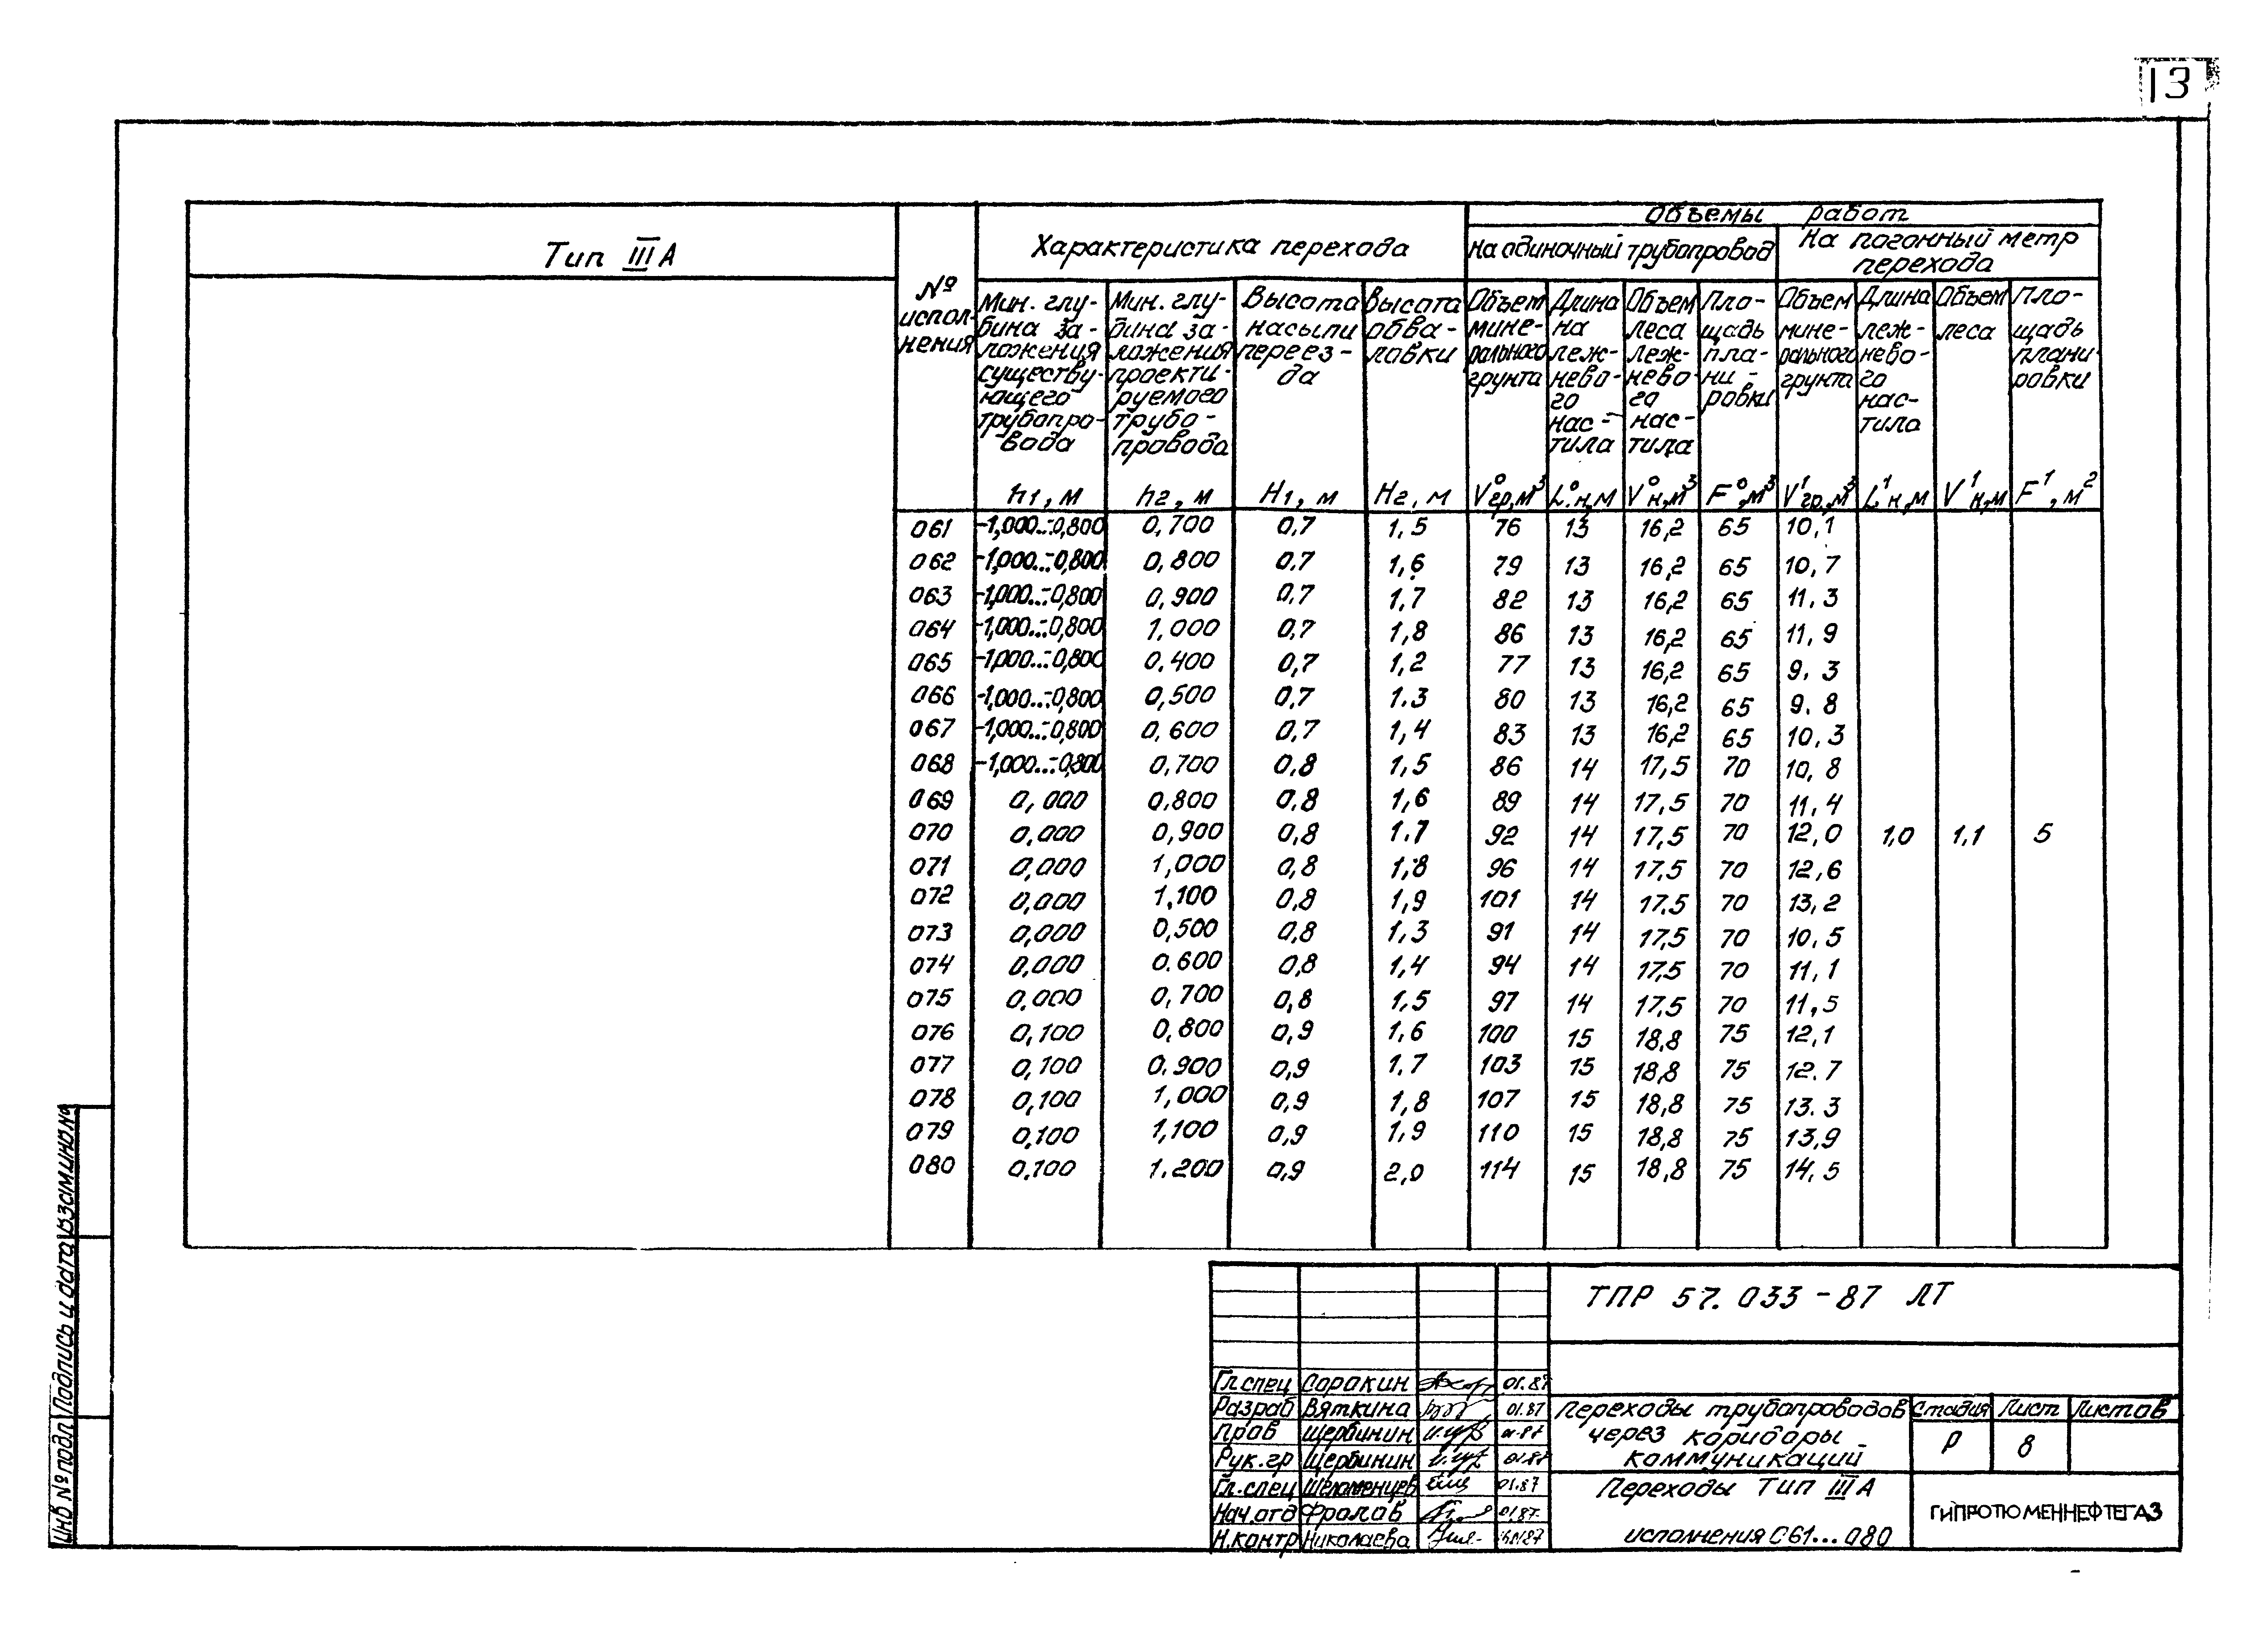 13
Тип III А
№ исполнения
Характеристика перехода
Объемы работ
На одиночный трубопровод
На погонный метр перехода
Мин. глубина заложения существующего трубопровода h1, м
Мин. глубина заложения проектируемого трубопровода h2, м
Высота насыпи переезда H1, м
Высота обваловки H2, м
Объем минерального грунта V⁰гр, м³
Длина на лежневого настила L⁰н, м
Объем леса лежневого настила V⁰н, м³
Площадь планировки F⁰, м³
Объем минерального грунта V¹гр, м³
Длина лежневого настила L¹н, м
Объем леса V¹н, м
Площадь планировки F¹, м²
061 -1,000...-0,800 0,700 0,7 1,5 76 13 16,2 65 10,1
062 -1,000...-0,800 0,800 0,7 1,6 79 13 16,2 65 10,7
063 -1,000...-0,800 0,900 0,7 1,7 82 13 16,2 65 11,3
064 -1,000...-0,800 1,000 0,7 1,8 86 13 16,2 65 11,9
065 -1,000...-0,800 0,400 0,7 1,2 77 13 16,2 65 9,3
066 -1,000...-0,800 0,500 0,7 1.3 80 13 16,2 65 9,8
067 -1,000...-0,800 0,600 0,7 1,4 83 13 16,2 65 10,3
068 -1,000...-0,800 0,700 0,8 1,5 86 14 17,5 70 10,8
069 0,000 0,800 0,8 1,6 89 14 17,5 70 11,4
070 0,000 0,900 0,8 1.7 92 14 17,5 70 12,0 1,0 1,1 5
071 0,000 1,000 0,8 1,8 96 14 17,5 70 12,6
072 0,000 1,100 0,8 1,9 101 14 17,5 70 13,2
073 0,000 0,500 0,8 1,3 91 14 17,5 70 10,5
074 0,000 0.600 0,8 1,4 94 14 17,5 70 11,1
075 0,000 0,700 0,8 1,5 97 14 17,5 70 11,5
076 0,100 0,800 0,9 1,6 100 15 18,8 75 12,1
077 0,100 0.900 0,9 1.7 103 15 18,8 75 12.7
078 0,100 1,000 0,9 1,8 107 15 18,8 75 13.3
079 0,100 1,100 0,9 1,9 110 15 18,8 75 13,9
080 0,100 1.200 0,9 2,0 114 15 18,8 75 14,5
ТПР 57.033-87 ЛТ
Гл.спец Сорокин 01.87
Разраб Вяткина 01.87
Пров Щербинин 01.87
Рук.гр Щербинин 01.87
Гл.спец Шеломенцев 01.87
Нач.отд Фролов 01.87
Н.контр Николаева 01.87
Переходы трубопроводов
через коридоры
коммуникаций
Стадия Лист Листов
Р 8
Переходы Тип III А
исполнения 061...080
ГИПРОТЮМЕННЕФТЕГАЗ
Инв № подл Подпись и дата Взам инв №